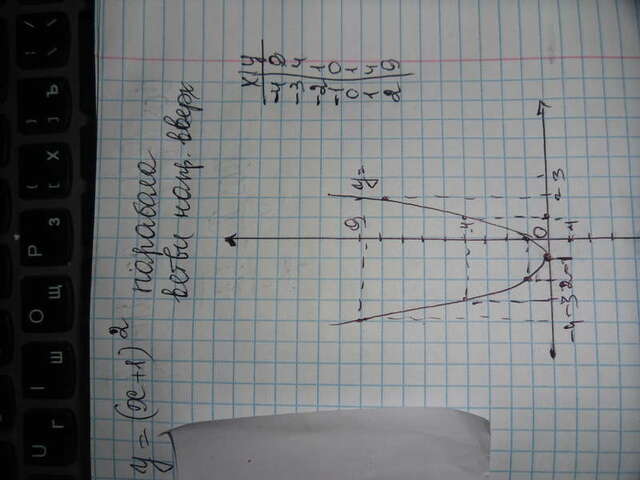 y = (x+1)² парабола
ветви напр. вверх
x | y
-4 | 9
-3 | 4
-2 | 1
-1 | 0
0 | 1
1 | 4
2 | 9
y=
9
4
0
-4 -3 -2 -1 2 3
-1
U Г
I Ш
O Щ
P З
{ [ Х
} ] Ъ
| \